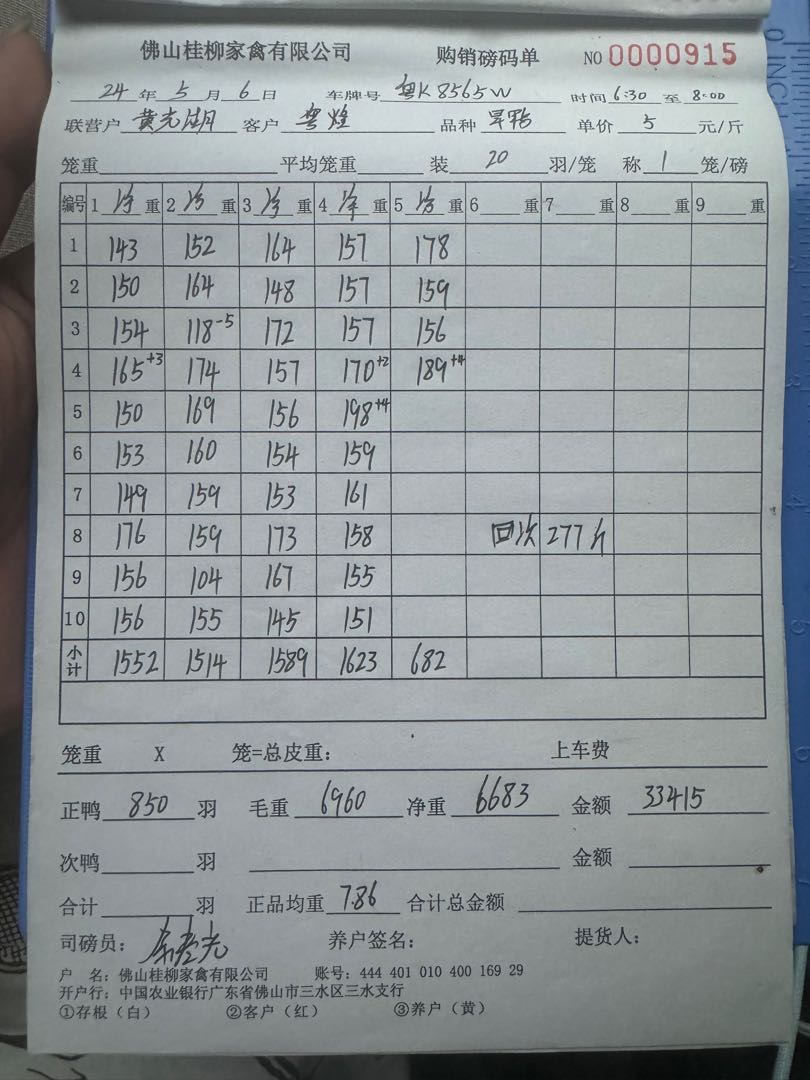 佛山桂柳家禽有限公司 购销磅码单 NO 0000915
24 年 5 月 6 日 车牌号 粤K8565W 时间 6:30 至 8:00
联营户 黄志湖 客户 粤煌 品种 旱鸭 单价 5 元/斤
笼重 平均笼重 装 20 羽/笼 称 1 笼/磅
编号 1 净 重 2 净 重 3 净 重 4 净 重 5 净 重 6 重 7 重 8 重 9 重
1 143 152 164 157 178
2 150 164 148 157 159
3 154 118-5 172 157 156
4 165+3 174 157 170+2 189+4
5 150 169 156 198+4
6 153 160 154 159
7 149 159 153 161
8 176 159 173 158 回次 277斤
9 156 104 167 155
10 156 155 145 151
小计 1552 1514 1589 1623 682
笼重 X 笼=总皮重: 上车费
正鸭 850 羽 毛重 6960 净重 6683 金额 33415
次鸭 羽 金额
合计 羽 正品均重 7.86 合计总金额
司磅员: 养户签名: 提货人:
户 名: 佛山桂柳家禽有限公司 账号: 444 401 010 400 169 29
开户行: 中国农业银行广东省佛山市三水区三水支行
①存根(白) ②客户(红) ③养户(黄)